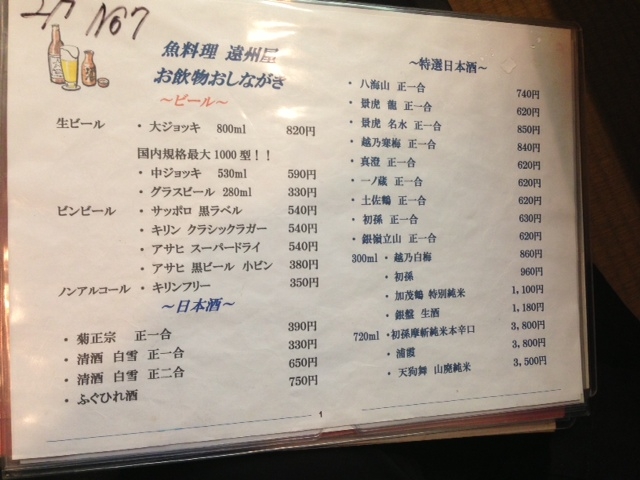 No7
魚料理 遠州屋
お飲物おしながき
～ビール～
生ビール ・大ジョッキ 800ml 820円
国内規格最大1000型！！
・中ジョッキ 530ml 590円
・グラスビール 280ml 330円
ビンビール ・サッポロ 黒ラベル 540円
・キリン クラシックラガー 540円
・アサヒ スーパードライ 540円
・アサヒ 黒ビール 小ビン 380円
ノンアルコール ・キリンフリー 350円
～日本酒～
・菊正宗 正一合 390円
・清酒 白雪 正一合 330円
・清酒 白雪 正二合 650円
・ふぐひれ酒 750円
1
～特選日本酒～
・八海山 正一合 740円
・景虎 龍 正一合 620円
・景虎 名水 正一合 850円
・越乃寒梅 正一合 840円
・真澄 正一合 620円
・一ノ蔵 正一合 620円
・土佐鶴 正一合 620円
・初孫 正一合 630円
・銀嶺立山 正一合 620円
300ml ・越乃白梅 860円
・初孫 960円
・加茂鶴 特別純米 1,100円
・銀盤 生酒 1,180円
720ml ・初孫摩斬純米本辛口 3,800円
・浦霞 3,800円
・天狗舞 山廃純米 3,500円